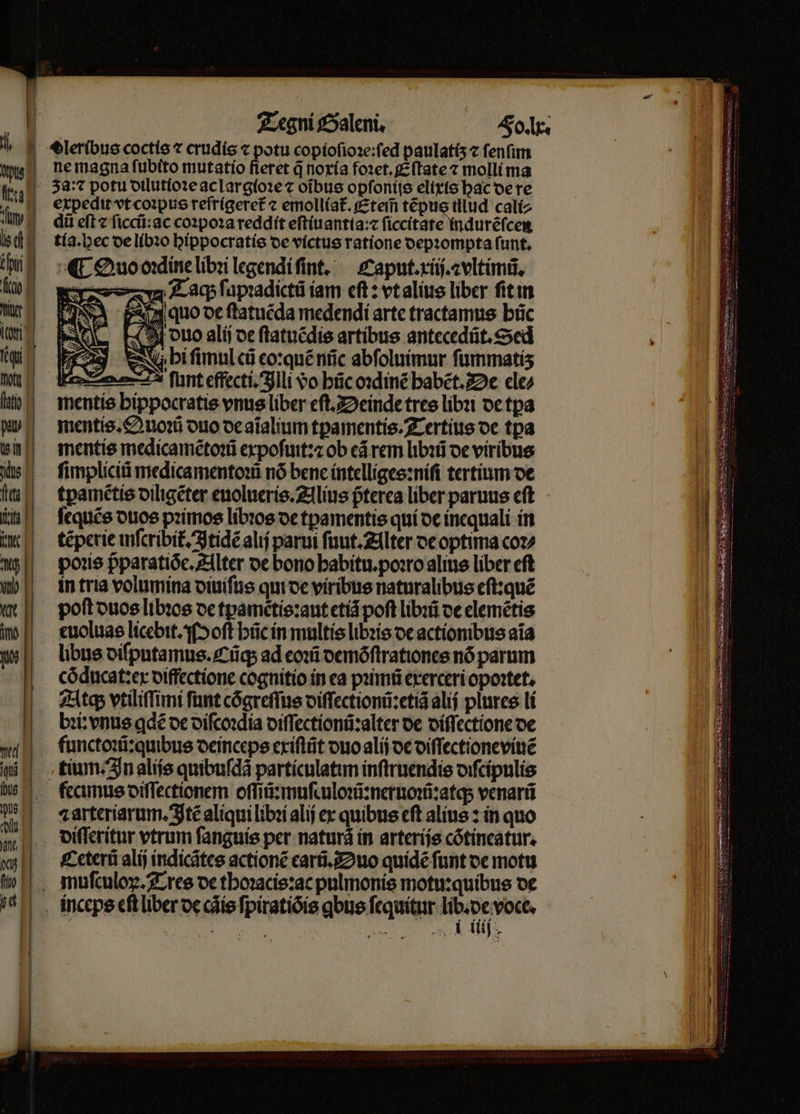 Tegni Galeni. Fo.lx.
Oleribus coctis ⁊ crudis ⁊ potu copiosiore:sed paulatiȝ ⁊ sensim
ne magna subito mutatio fieret q̃ noxia foret. Estate ⁊ molli ma
za:⁊ potu dilutiore ac largiore ⁊ oĩbus opsonijs elixis hac de re
expedit vt corpus refrigeret̃ ⁊ emolliat̃. Eteim̃ tẽpus illud cali⸗
dũ est ⁊ siccũ:ac corpora reddit estiuantia:⁊ siccitate indurẽscen
tia.hec de libro hippocratis de victus ratione deprompta sunt.
¶ Quo ordine libri legendi sint. Caput.xiij.⁊vltimũ.
Taqꝫ supradictũ iam est : vt alius liber sit in
quo de statuẽda medendi arte tractamus hũc
duo alij de statuẽdis artibus antecedũt. Sed
hi simul cũ eo:quẽ nũc absoluimur summatiȝ
sunt effecti. Illi v̊o hũc ordinẽ habẽt. De ele⸗
mentis hippocratis vnus liber est. Deinde tres libri de tpa
mentis. Quorũ duo de aĩalium tpamentis. Tertius de tpa
mentis medicamẽtorũ exposuit:⁊ ob eã rem librũ de viribus
simpliciũ medicamentorũ nõ bene intelliges:nisi tertium de
tpamẽtis diligẽter euolueris. Alius p̃terea liber paruus est
sequẽs duos primos libros de tpamentis qui de inequali in
tẽperie inscribit̃. Itidẽ alij parui sunt. Alter de optima cor⸗
poris p̃paratiõe. Alter de bono habitu.porro alius liber est
in tria volumina diuisus qui de viribus naturalibus est:quẽ
post duos libros de tpamẽtis:aut etiã post librũ de elemẽtis
euoluas licebit. Post hũc in multis libris de actionibus aĩa
libus disputamus. Cũqꝫ ad eorũ demõstrationes nõ parum
cõducat:ex dissectione cognitio in ea primũ exerceri oportet.
Atqꝫ vtilissimi sunt cõgressus dissectionũ:etiã alij plures li
bri: vnus qdẽ de discordia dissectionũ:alter de dissectione de
functorũ:quibus deinceps existũt duo alij de dissectioneviuẽ
tium. In alijs quibusdã particulatim instruendis discipulis
fecimus dissectionem ossiũ:musculorũ:neruorũ:atqꝫ venarũ
⁊ arteriarum. Itẽ aliqui libri alij ex quibus est alius : in quo
disseritur vtrum sanguis per naturã in arterijs cõtineatur.
Ceterũ alij indicãtes actionẽ earũ. Duo quidẽ sunt de motu
musculoꝝ. Tres de thoracis:ac pulmonis motu:quibus de
inceps est liber de cãis spiratiõis qbus sequitur lib.de voce.
i iiij